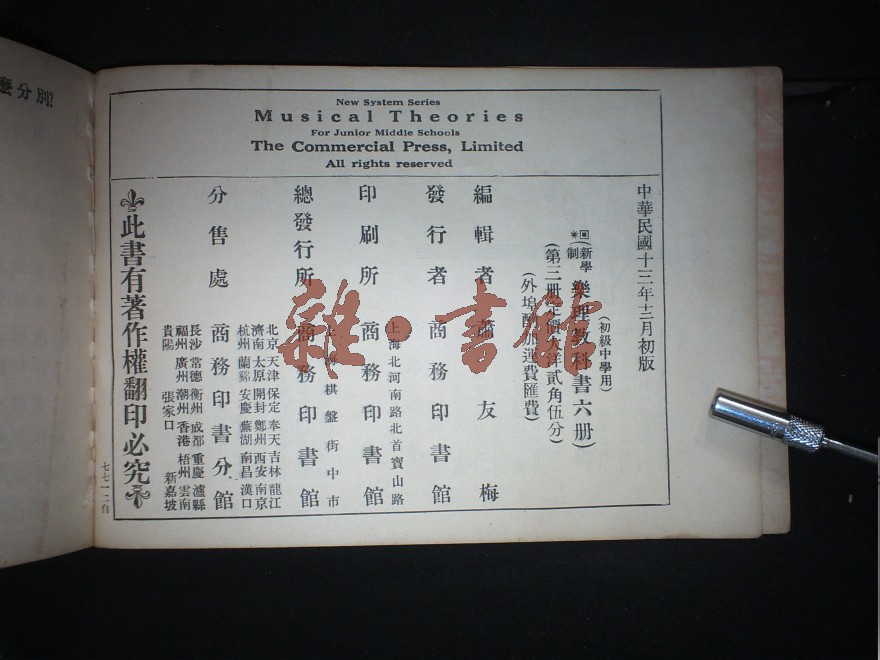 New System Series
Musical Theories
For Junior Middle Schools
The Commercial Press, Limited
All rights reserved
中華民國十三年十二月初版
(初級中學用)
(新學制 樂理教科書六册)
(第三册定價大洋貳角伍分)
(外埠酌加運費匯費)
編輯者 蕭友梅
發行者 商務印書館
上海北河南路北首寶山路
印刷所 商務印書館
上海棋盤街中市
總發行所 商務印書館
北京 天津 保定 奉天 吉林 龍江
濟南 太原 開封 鄭州 西安 南京
杭州 蘭谿 安慶 蕪湖 南昌 漢口
分售處 商務印書分館
長沙 常德 衡州 成都 重慶 瀘縣
福州 廣州 潮州 香港 梧州 雲南
貴陽 張家口 新嘉坡
此書有著作權翻印必究
麽分別?
雜·書館